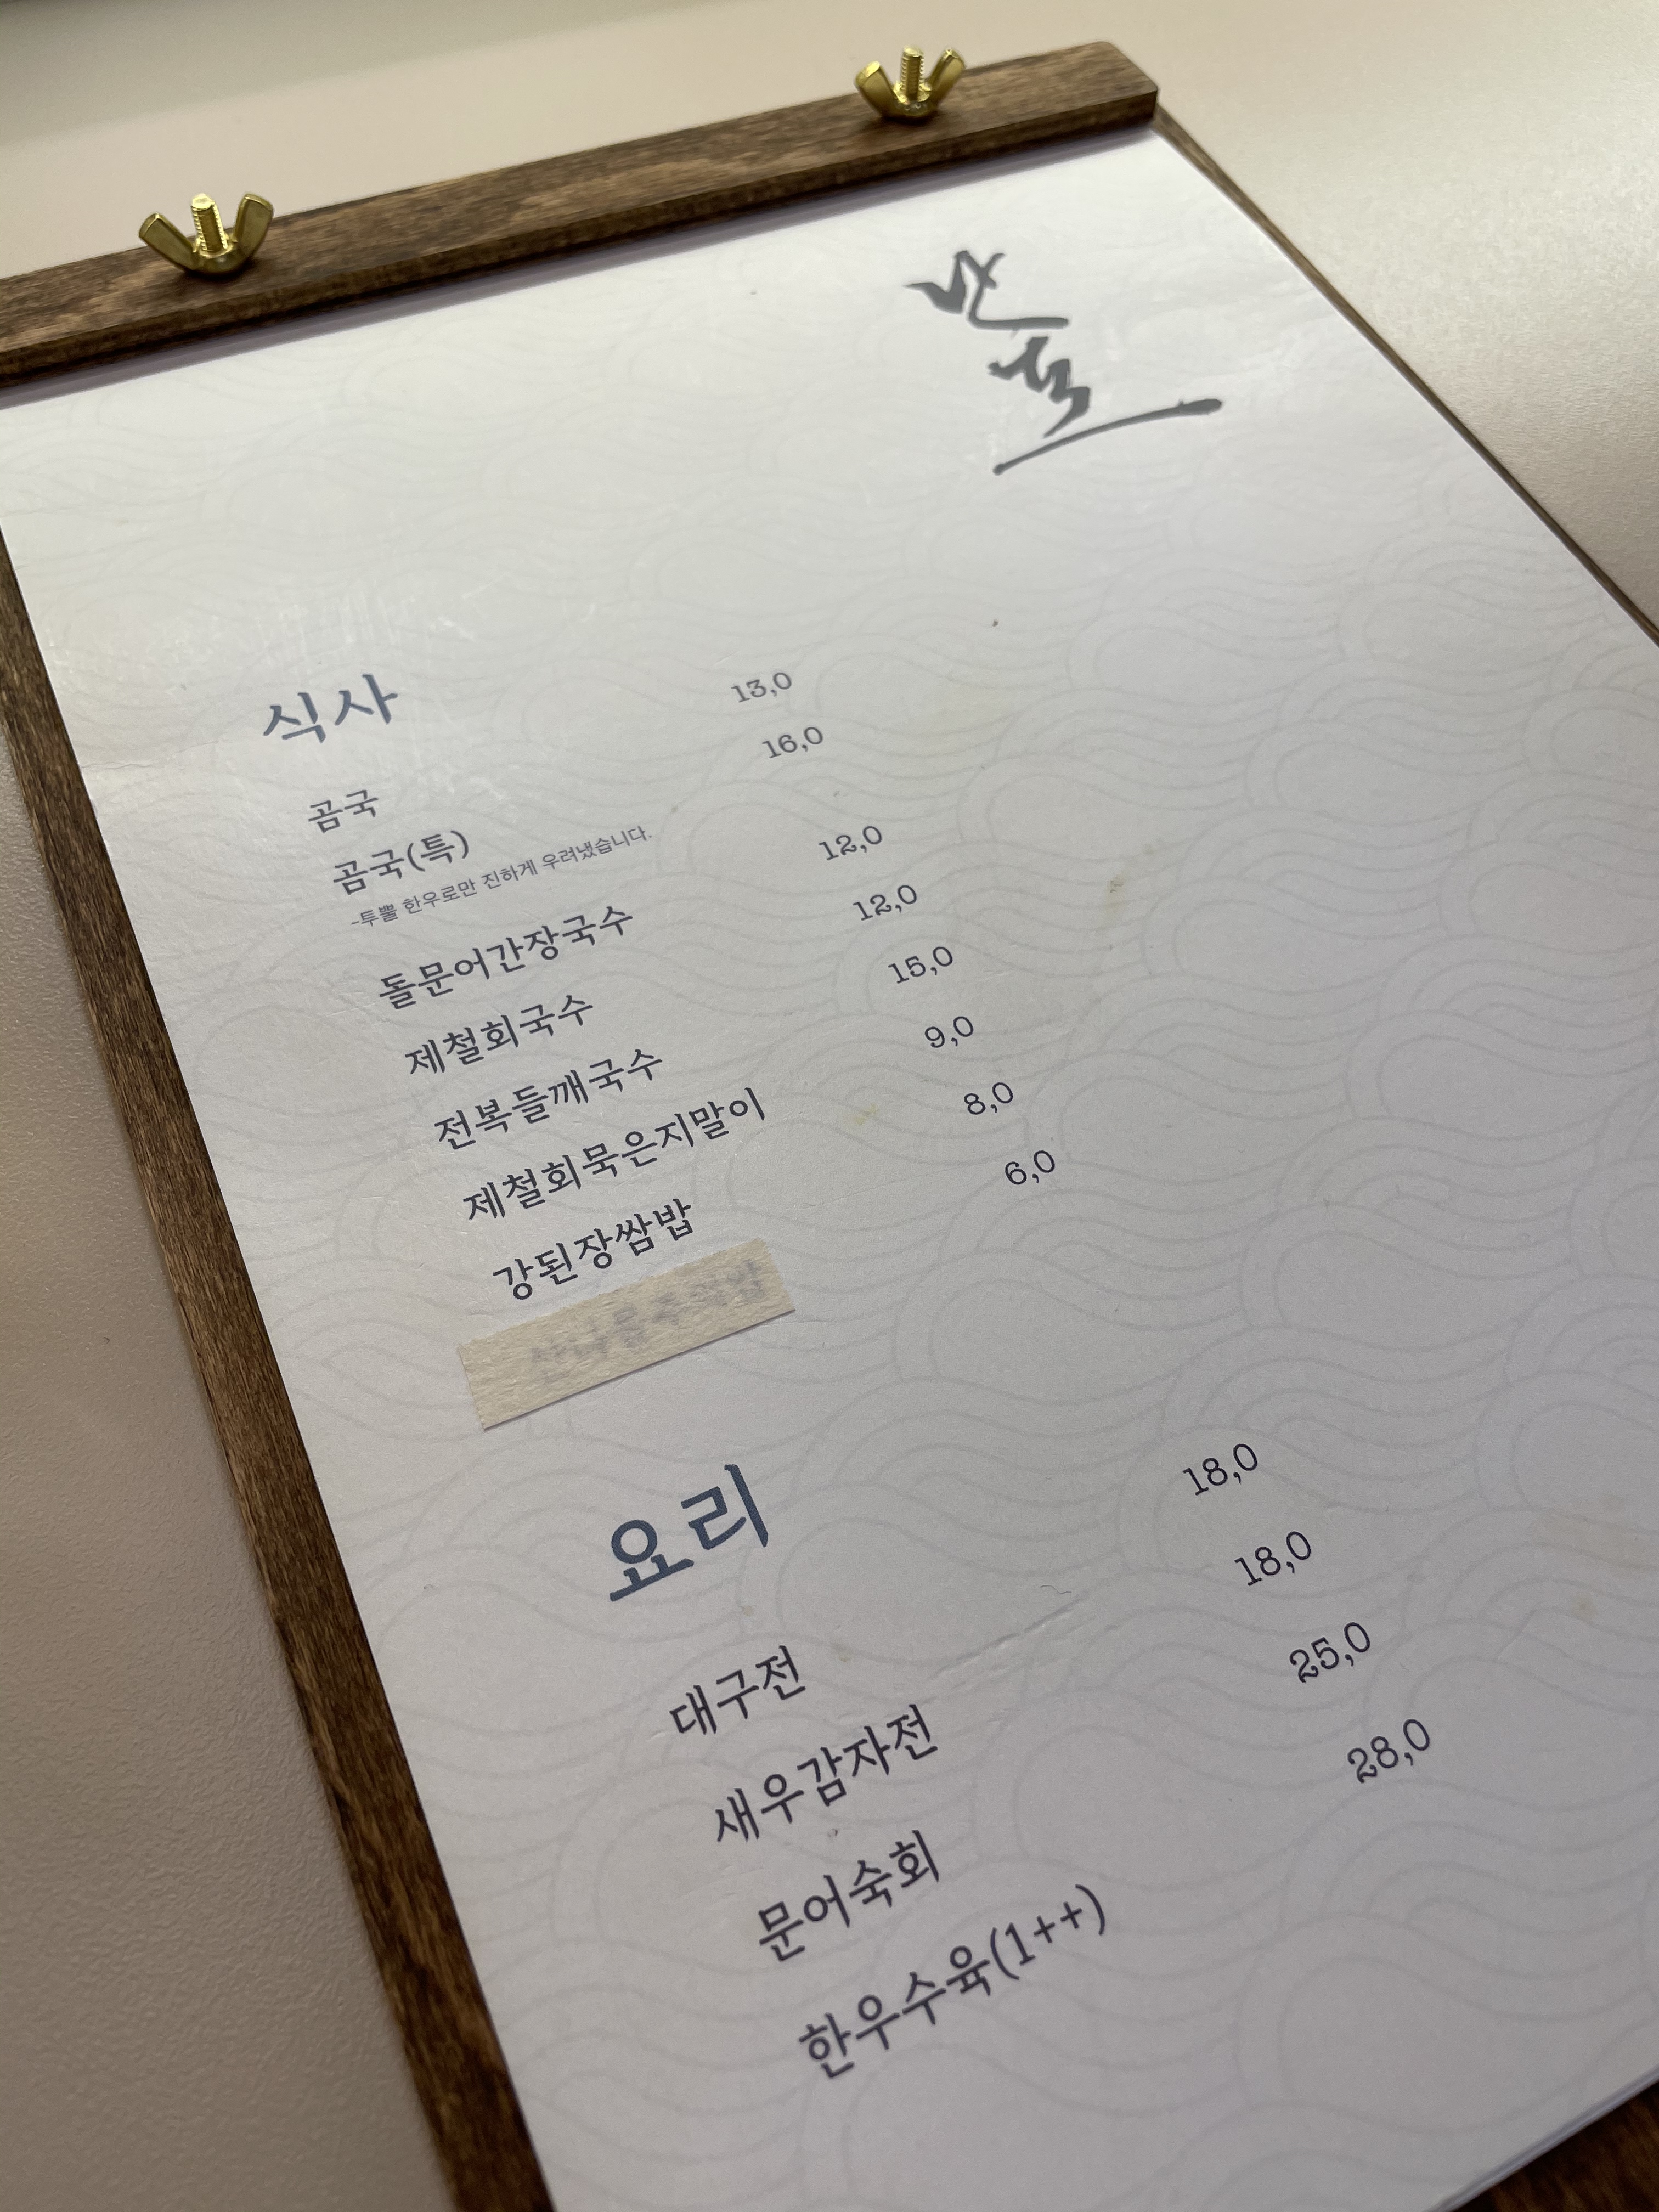 식사
곰국 13,0
곰국(특) 16,0
-투뿔 한우로만 진하게 우려냈습니다.
돌문어간장국수 12,0
제철회국수 12,0
전복들깨국수 15,0
제철회묵은지말이 9,0
강된장쌈밥 8,0
6,0
요리
대구전 18,0
새우감자전 18,0
문어숙회 25,0
한우수육(1++) 28,0